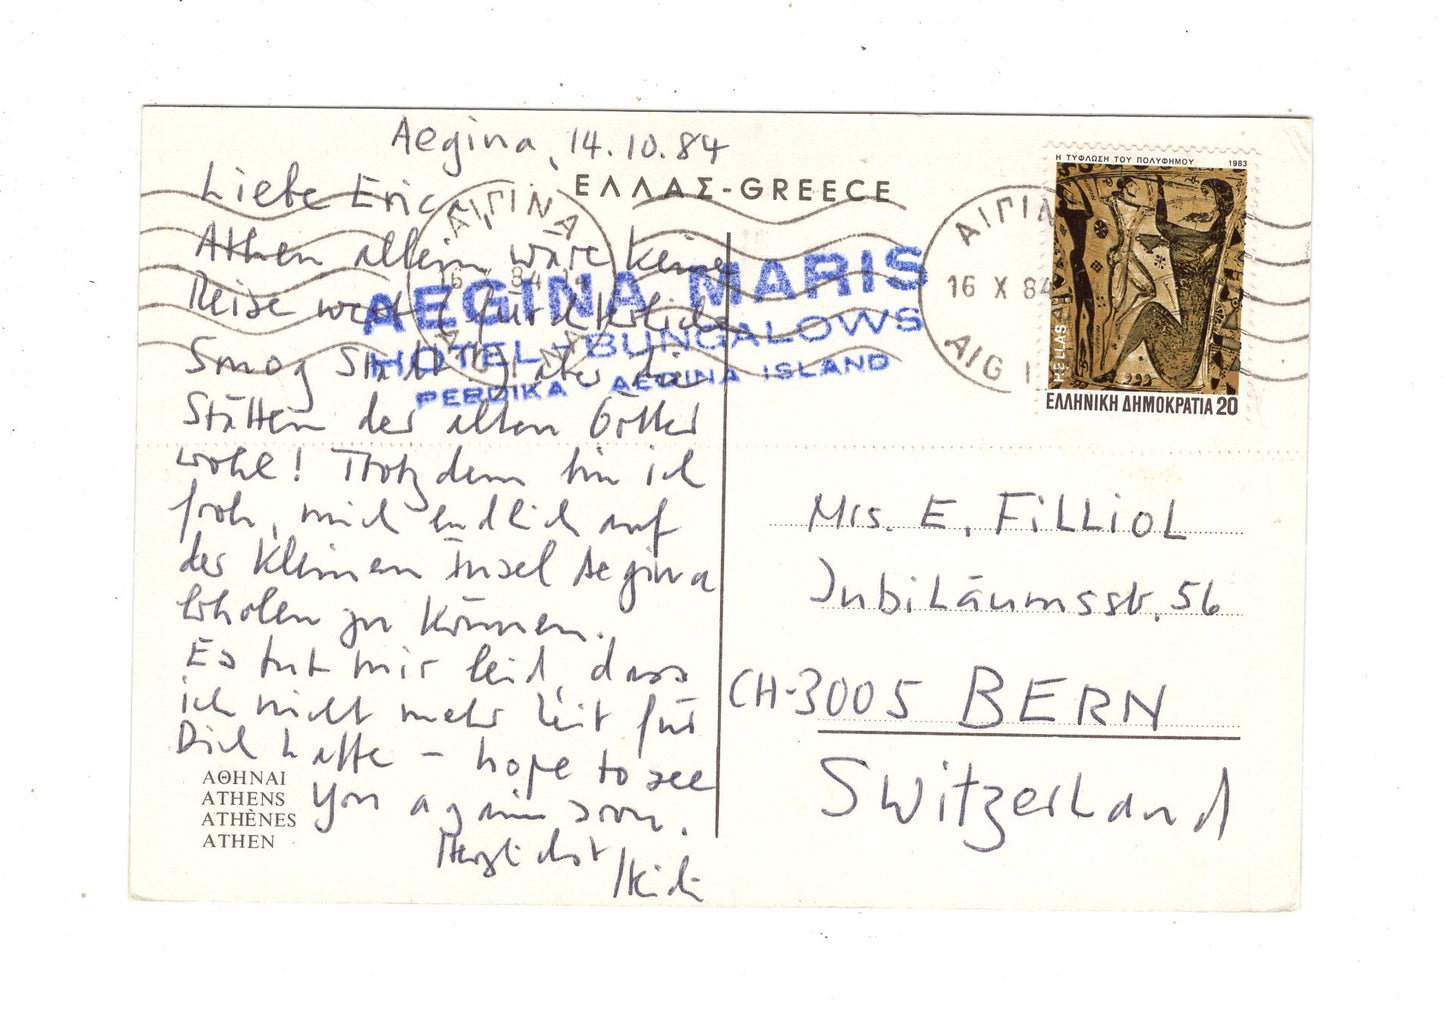 Aegina, 14.10.84
Liebe Erica,
Athen allein wäre keine
Reise wert (fürchterliche
Smog Stadt), aber die
Stätten der alten Götter
wohl! Trotzdem bin ich
froh, mich endlich auf
der kleinen Insel Aegina
erholen zu können.
Es tut mir leid, dass
ich nicht mehr Zeit für
Dich hatte – hope to see
you again soon.
Herzlichst
Heidi
ΑΘΗΝΑΙ
ATHENS
ATHÈNES
ATHEN
ΕΛΛΑΣ-GREECE
AEGINA MARIS
HOTEL - BUNGALOWS
PERDIKA - AEGINA ISLAND
ΑΙΓΙΝΑ
16 X 84
ΑΙΓΙΝ
16 X 84
AIG
Η ΤΥΦΛΩΣΗ ΤΟΥ ΠΟΛΥΦΗΜΟΥ 1983
HELLAS
ΕΛΛΗΝΙΚΗ ΔΗΜΟΚΡΑΤΙΑ 20
Mrs. E. FiLLioL
Jubiläumsstr. 56
CH-3005 BERN
Switzerland